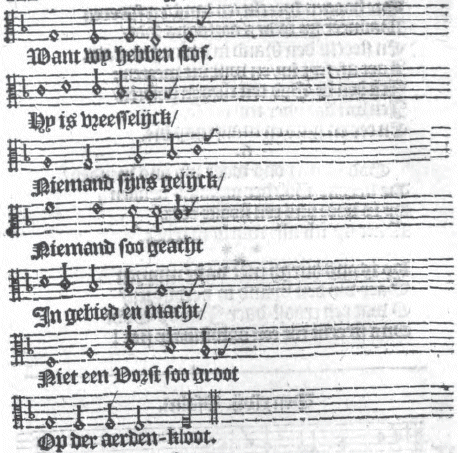 Want wy hebben stof.
Hy is vreesselijck/
Niemand sijns gelijck/
Niemand soo geacht
In gebied en macht/
Niet een Vorst soo groot
Op der aerden-kloot.